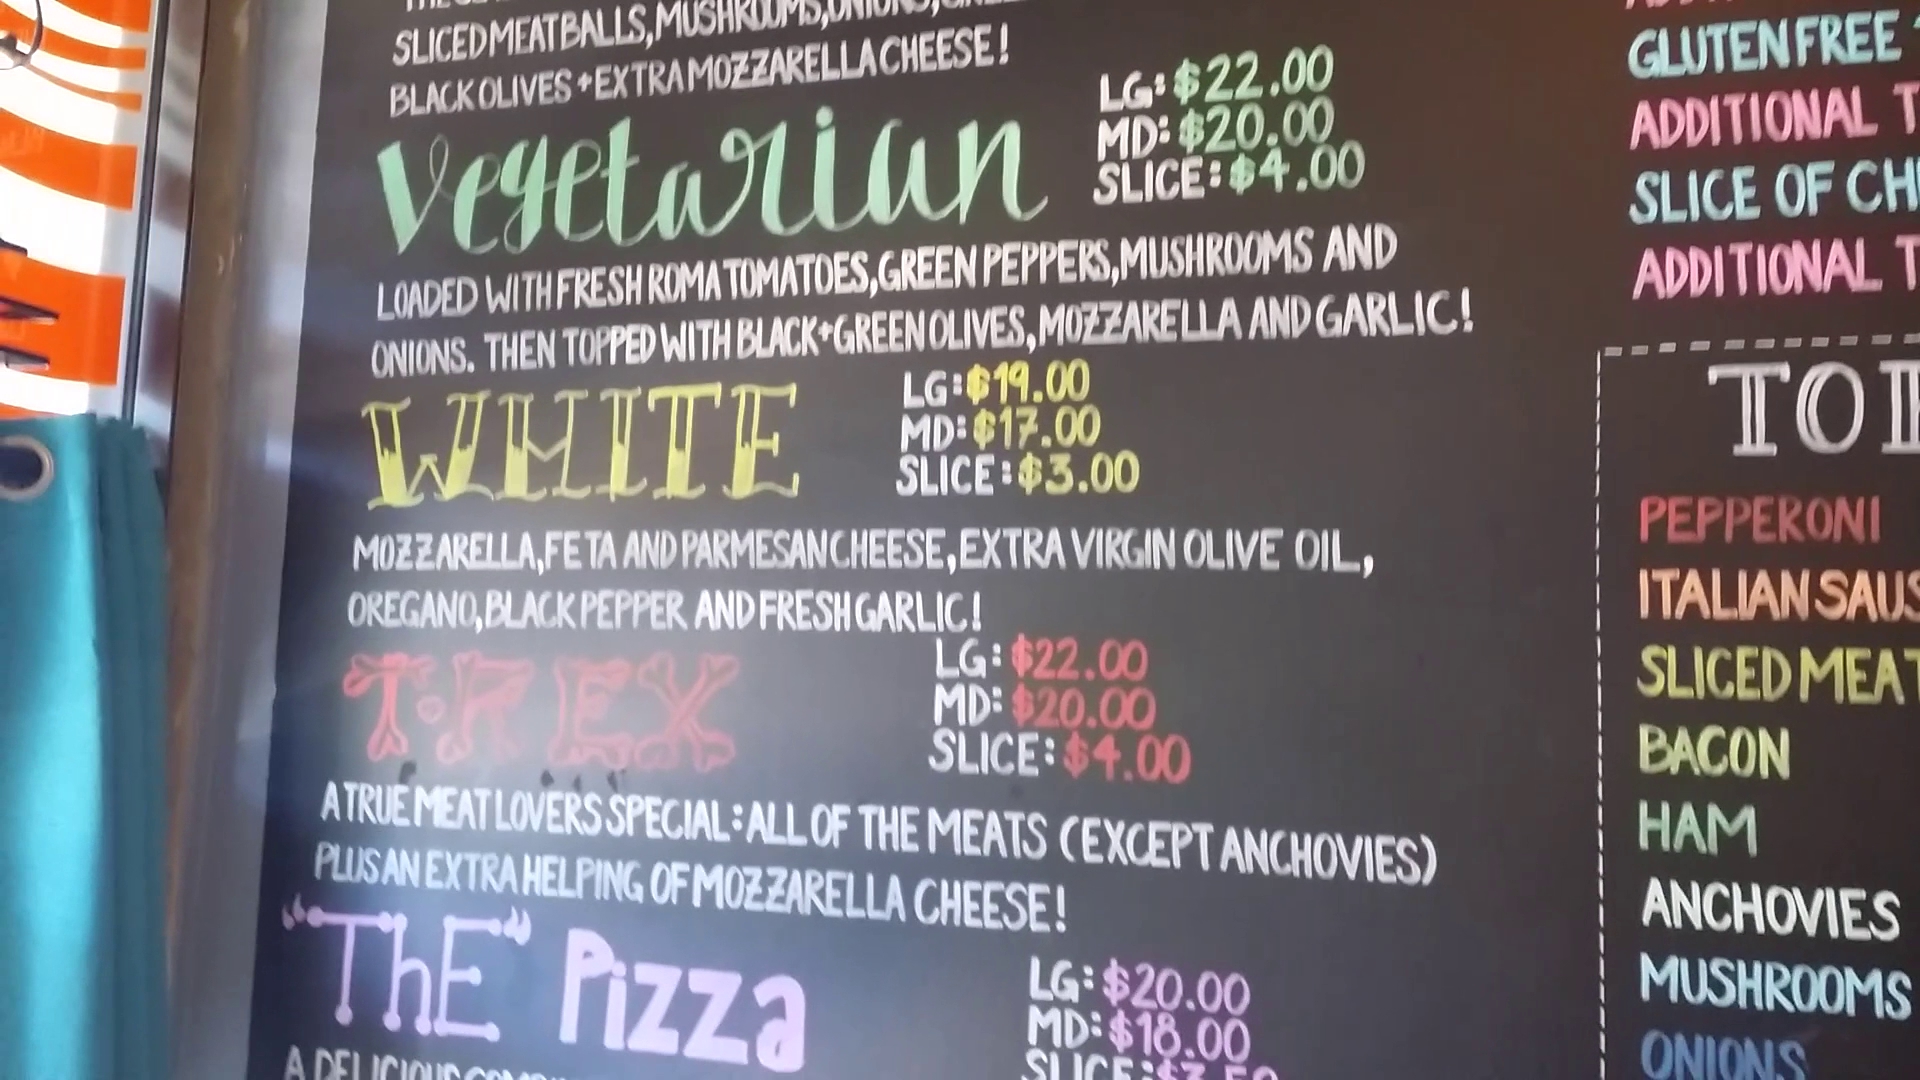 SLICED MEATBALLS, MUSHROOMS, ONIONS,
BLACK OLIVES + EXTRA MOZZARELLA CHEESE!
Vegetarian
LG: $22.00
MD: $20.00
SLICE: $4.00
LOADED WITH FRESH ROMA TOMATOES, GREEN PEPPERS, MUSHROOMS AND
ONIONS. THEN TOPPED WITH BLACK + GREEN OLIVES, MOZZARELLA AND GARLIC!
WHITE
LG: $19.00
MD: $17.00
SLICE: $3.00
MOZZARELLA, FETA AND PARMESAN CHEESE, EXTRA VIRGIN OLIVE OIL,
OREGANO, BLACK PEPPER AND FRESH GARLIC!
T·REX
LG: $22.00
MD: $20.00
SLICE: $4.00
A TRUE MEAT LOVERS SPECIAL: ALL OF THE MEATS (EXCEPT ANCHOVIES)
PLUS AN EXTRA HELPING OF MOZZARELLA CHEESE!
"ThE" Pizza
LG: $20.00
MD: $18.00
SLICE: $3.50
A DELICIOUS
GLUTEN FREE
ADDITIONAL
SLICE OF
ADDITIONAL
PEPPERONI
ITALIAN
SLICED
BACON
HAM
ANCHOVIES
MUSHROOMS
ONIONS